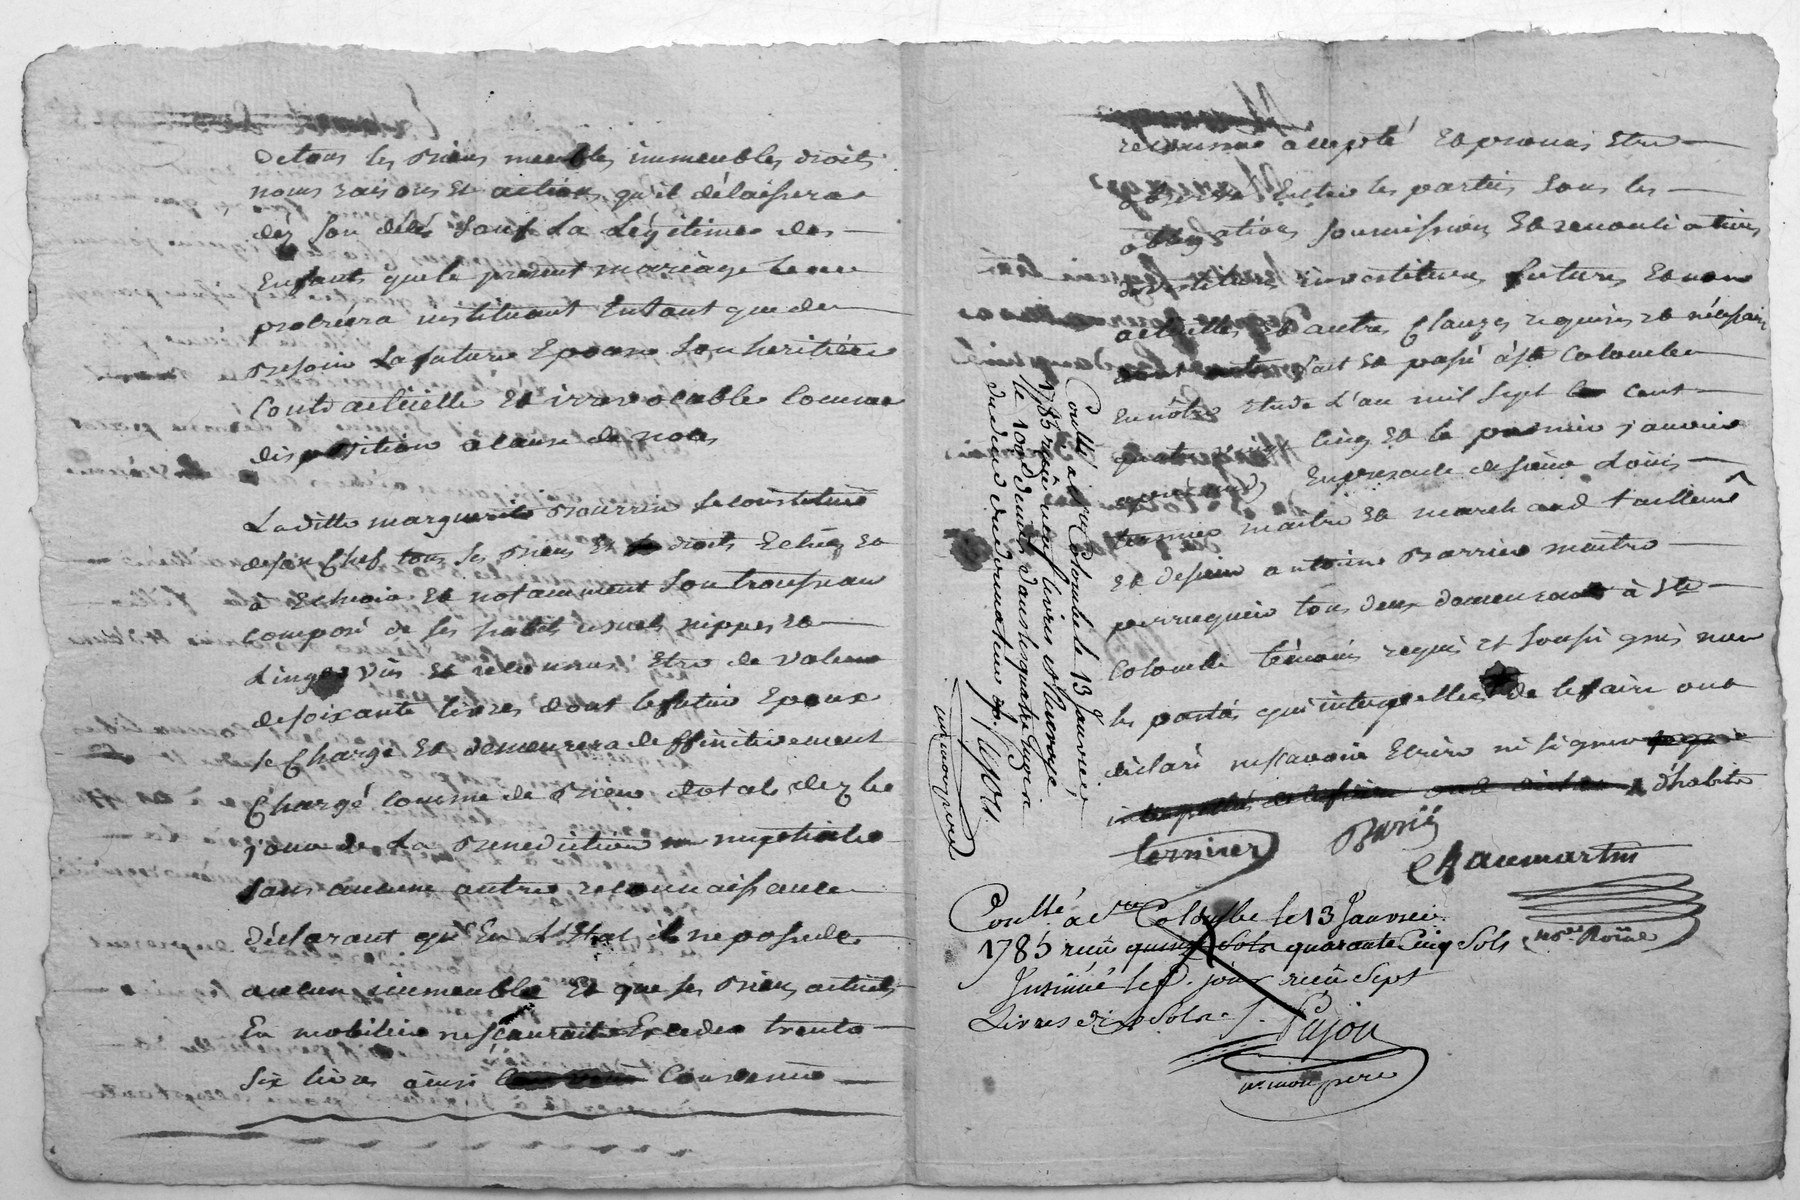 de tous les biens meubles immeubles droits
noms raisons et actions qu'il délaissera
déz son déces sauf La Légitime des
Enfants que le present mariage
procréera instituant Entant que de
besoin La future Epouse son heritiere
Contractuelle et irrevocable comme
disposition a cause de noces
Laditte marguerite Bourrin se constitue
de son Chef tous ses biens et droits Echus et
à Echoir et notamment son trousseau
composé de ses habits usuels nippes et
Linges vûs et reconnus Etre de valeur
de soixante livres dont le futur Epoux
se Charge et demeurera deffinitivement
Chargé comme de bien dotal dez le
jour de La Benediction nuptiale
sans aucune autre reconnaissance
déclarant qu'En L'Etat il ne possede
aucun immeuble Et que ses biens actuels
En mobilier ne scauroit Exceder trente
Six livres ainsi convenu
reconnu accepté et promis Etre
observé Entre les parties sous les
obligations soumissions et renonciations
investitures futures et non
actuelles et autres Clauzes requises et nécessaires
fait et passé à Ste Colombe
En nôtre Etude L'an mil sept cent
quatre vingt Cinq et le premier janvier
En presence de sieur Loüis
ternier maitre et marchand tailleur
et de sieur antoine Barrier maitre
perruquier tous deux demeurant à Ste
Colombe témoins requis et soussignés non
les parties qui interpellées de le faire ont
déclaré ne scavoir Ecrire ni signer
d'habite
ternier
Chaumartin
no.re Roïal
Conllé à Ste Colombe le 13 Janvier
1785 reçu quinze sols quarante Cinq sols
Insinué le d. jour reçu sept
Livres dix sols
Pujon
Conllé à Ste Colombe le 13 Janvier
1785 reçu neuf livres
le 100e denier dans les quatre mois
du deces du donateur
Pujon